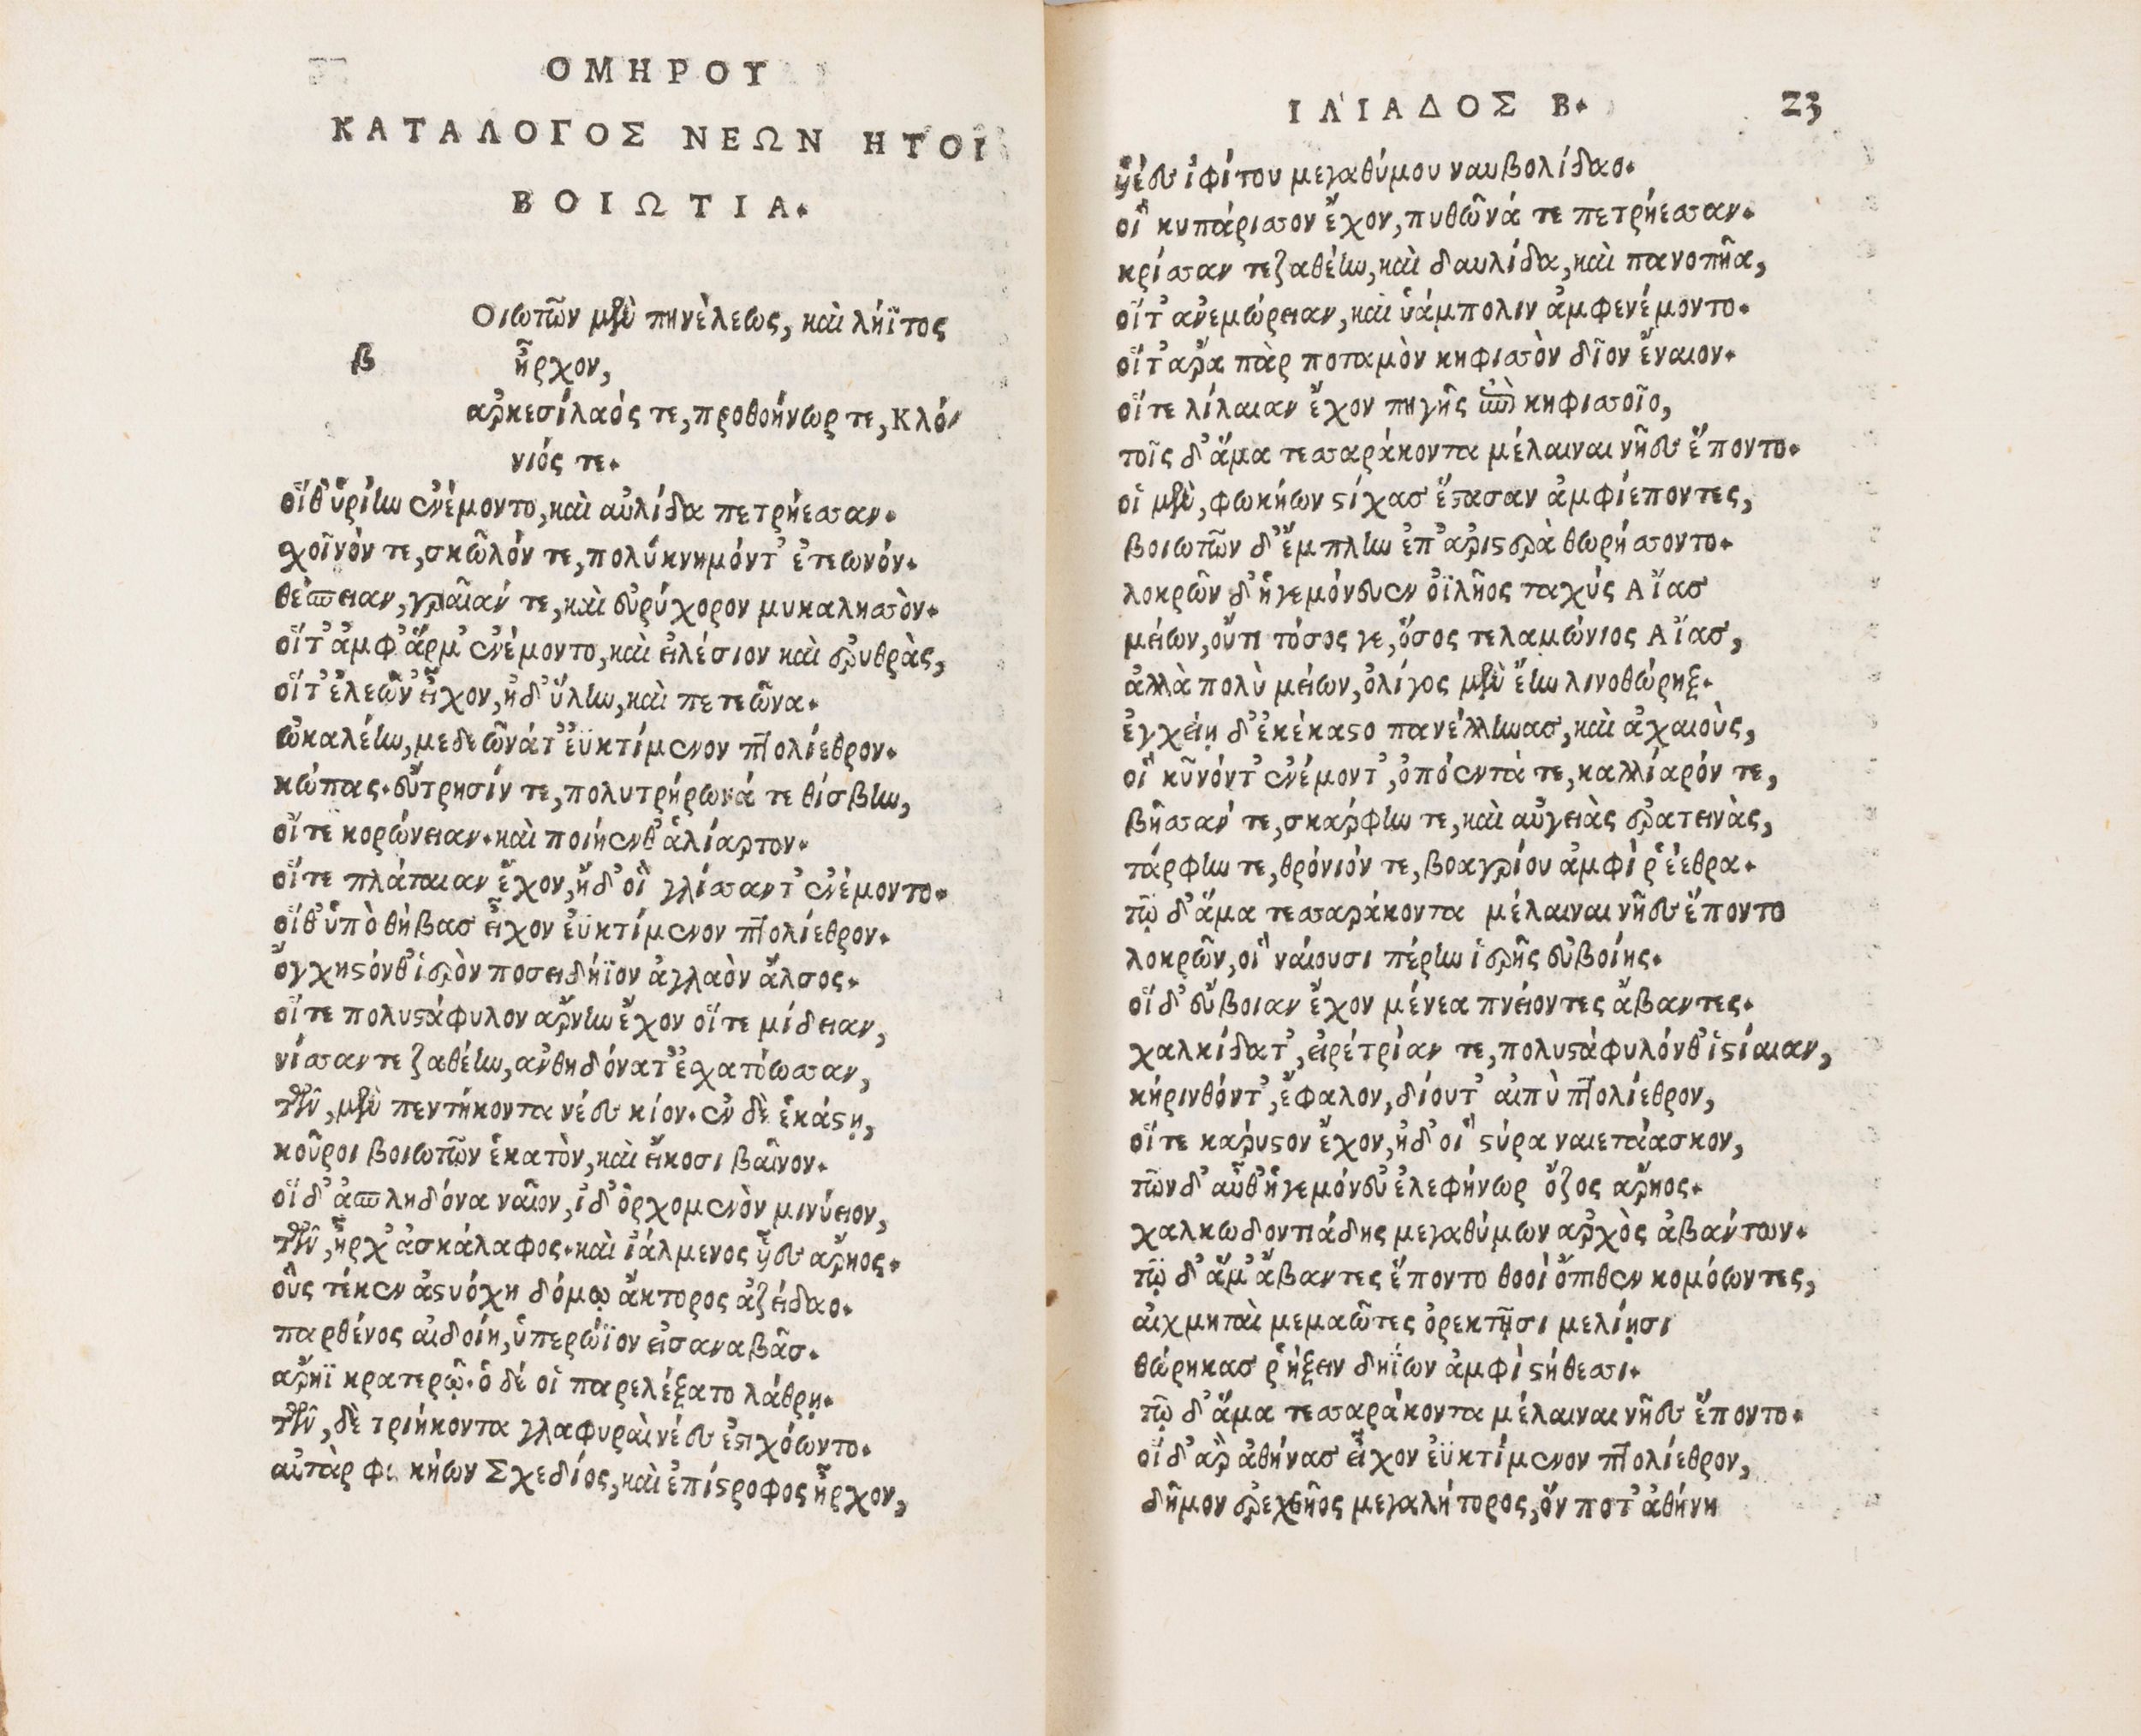 ΟΜΗΡΟΥ
ΚΑΤΑΛΟΓΟΣ ΝΕΩΝ ΗΤΟΙ
ΒΟΙΩΤΙΑ.
β
Οιωτῶν μὲν πηνέλεως, καὶ λήϊτος
ἦρχον,
ἀρκεσίλαός τε, προθοήνωρ τε, Κλό-
νιός τε.
οἵθ' ὑρίην ἐνέμοντο, καὶ αὐλίδα πετρήεσσαν.
σχοῖνόν τε, σκῶλόν τε, πολύκνημόντ' ἐτεωνόν.
θέσπειαν, γραῖάν τε, καὶ εὐρύχορον μυκαλησσὸν.
οἵτ' ἀμφ' ἅρμ' ἐνέμοντο, καὶ εἰλέσιον καὶ ἐρυθρὰς,
οἵτ' ἐλεῶν' εἶχον, ἠδ' ὕλην, καὶ πετεῶνα.
ὠκαλέην, μεδεῶνάτ' ἐϋκτίμενον πτολίεθρον.
κώπας. εὔτρησίν τε, πολυτρήρωνά τε θίσβην,
οἵτε κορώνειαν. καὶ ποιήενθ' ἁλίαρτον.
οἵτε πλάταιαν ἔχον, ἠδ' οἳ γλίσσαντ' ἐνέμοντο.
οἵθ' ὑπὸ θήβασ εἶχον ἐϋκτίμενον πτολίεθρον.
ὄγχηστόνθ' ἱερὸν ποσειδήϊον ἀγλαὸν ἄλσος.
οἵτε πολυστάφυλον ἄρνην ἔχον οἵτε μίδειαν,
νίσσαν τε ζαθέην, ἀνθηδόνατ' ἐσχατόωσαν,
τῶν, μὲν πεντήκοντα νέες κίον. ἐν δὲ ἑκάστῃ,
κοῦροι βοιωτῶν ἑκατὸν, καὶ εἴκοσι βαῖνον.
οἵδ' ἀσπληδόνα ναῖον, ἰδ' ὀρχομενὸν μινύειον,
τῶν, ἦρχ' ἀσκάλαφος. καὶ ἰάλμενος ὗες ἄρηος.
οὓς τέκεν ἀστυόχη δόμῳ ἄκτορος ἀζείδαο.
παρθένος αἰδοίη, ὑπερώϊον εἰσαναβᾶσ.
ἄρηϊ κρατερῷ. ὁ δέ οἱ παρελέξατο λάθρῃ.
τῶν, δὲ τριήκοντα γλαφυραὶ νέες ἐστιχόωντο.
αὐτὰρ φωκήων Σχεδίος, καὶ ἐπίστροφος ἦρχον,
ΙΛΙΑΔΟΣ Β. 23
ὑέες ἰφίτου μεγαθύμου ναυβολίδαο.
οἳ κυπάρισσον ἔχον, πυθῶνά τε πετρήεσσαν.
κρίσσαν τε ζαθέην, καὶ δαυλίδα, καὶ πανοπῆα,
οἵτ' ἀνεμώρειαν, καὶ ὑάμπολιν ἀμφενέμοντο.
οἵτ' ἄρα πὰρ ποταμὸν κηφισσὸν δῖον ἔναιον.
οἵτε λίλαιαν ἔχον πηγῆς ὑπὸ κηφισσοῖο,
τοῖς δ' ἅμα τεσσαράκοντα μέλαιναι νῆες ἕποντο.
οἱ μὲν, φωκήων στίχασ ἕστασαν ἀμφιέποντες,
βοιωτῶν δ' ἔμπλην ἐπ' ἀριστερὰ θωρήσσοντο.
λοκρῶν δ' ἡγεμόνευεν ὀϊλῆος ταχύς Αἴασ
μείων, οὔτι τόσος γε, ὅσος τελαμώνιος Αἴασ,
ἀλλὰ πολὺ μείων, ὀλίγος μὲν ἔην λινοθώρηξ.
ἐγχείῃ δ' ἐκέκαστο πανέλληνασ, καὶ ἀχαιοὺς,
οἳ κῦνόντ' ἐνέμοντ', ὀπόεντά τε, καλλίαρόν τε,
βῆσσάν τε, σκάρφην τε, καὶ αὐγειὰς ἐρατεινὰς,
τάρφην τε, θρόνιόν τε, βοαγρίου ἀμφὶ ῥέεθρα.
τῷ δ' ἅμα τεσσαράκοντα μέλαιναι νῆες ἕποντο
λοκρῶν, οἳ ναίουσι πέρην ἱερῆς εὐβοίης.
οἵδ' εὔβοιαν ἔχον μένεα πνείοντες ἄβαντες.
χαλκίδατ', εἰρέτρίαν τε, πολυστάφυλόνθ' ἱστίαιαν,
κήρινθόντ', ἔφαλον, δίουτ' αἰπὺ πτολίεθρον,
οἵτε κάρυστον ἔχον, ἠδ' οἳ στύρα ναιετάασκον,
τῶν δ' αὖθ' ἡγεμόνευ' ἐλεφήνωρ ὄζος ἄρηος.
χαλκωδοντιάδης μεγαθύμων ἀρχὸς ἀβάντων.
τῷ δ' ἅμ' ἄβαντες ἕποντο θοοὶ ὄπιθεν κομόωντες,
αἰχμηταὶ μεμαῶτες ὀρεκτῇσι μελίῃσι
θώρηκασ ῥήξειν δηίων ἀμφὶ στήθεσσι.
τῷ δ' ἅμα τεσσαράκοντα μέλαιναι νῆες ἕποντο.
οἵδ' ἄρ' ἀθήνασ εἶχον ἐϋκτίμενον πτολίεθρον,
δῆμον ἐρεχθῆος μεγαλήτορος, ὅν ποτ' ἀθήνη